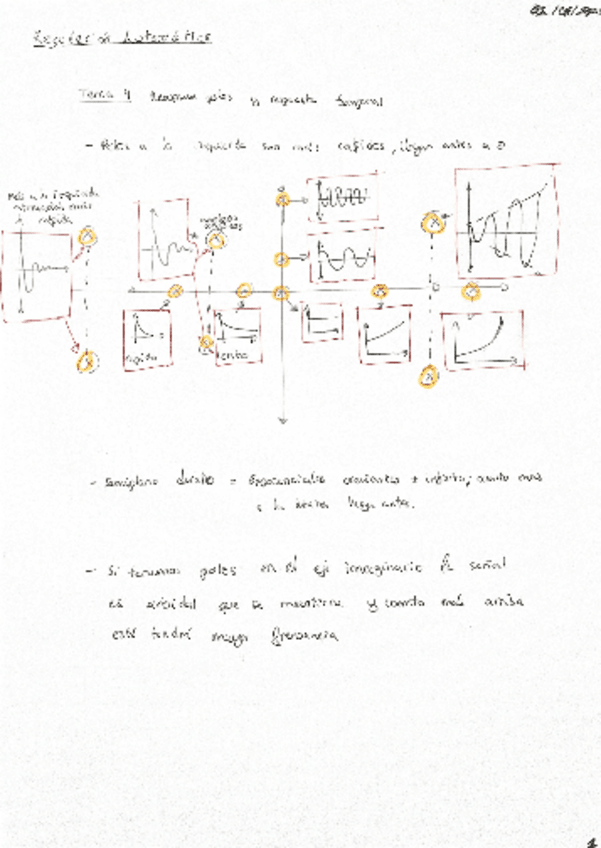 Regulación Automática
Tema 4 Respuesta polos y respuesta temporal
- Polos a la izquierda son más rápidos, llegan antes a 0
Más a la izquierda
más
rápida
rápido
lento
- Semiplano derecho = Exponenciales crecientes + infinito, cuanto más
a la derecha llega antes.
- Si tenemos polos en el eje imaginario la señal
es senoidal que se mantiene y cuanto más arriba
esté tendrá mayor frecuencia
1